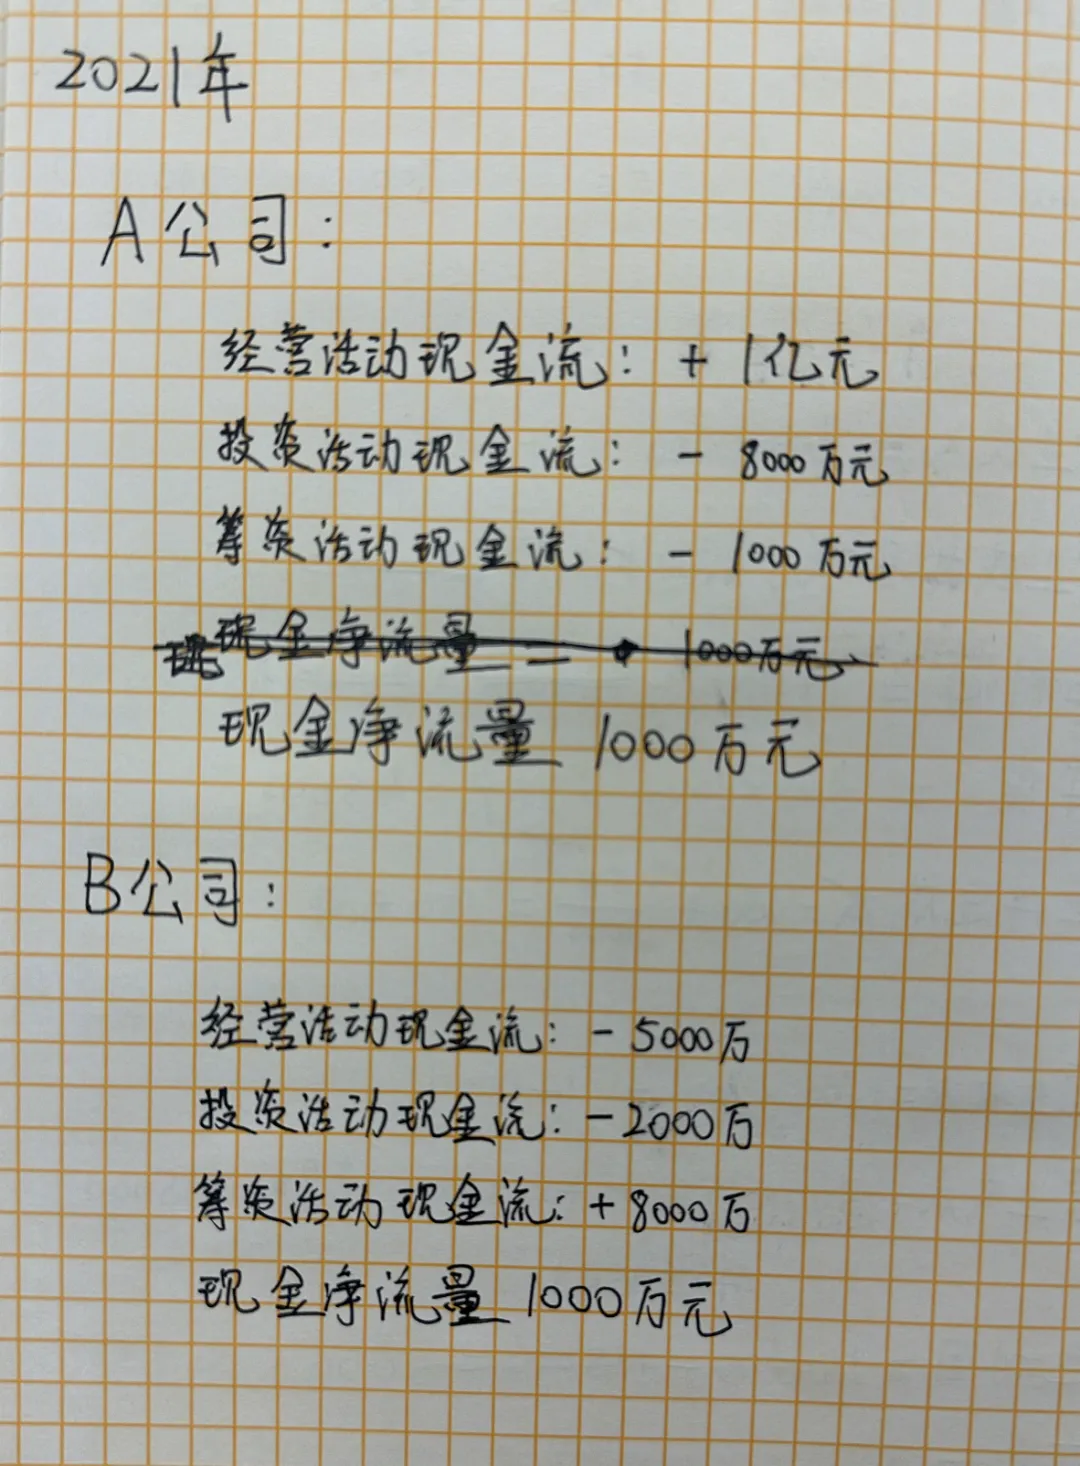 2021年
A公司:
经营活动现金流: + 1亿元
投资活动现金流: - 8000万元
筹资活动现金流: - 1000万元
现金净流量 1000万元
现金净流量 1000万元
B公司:
经营活动现金流: - 5000万
投资活动现金流: - 2000万
筹资活动现金流: + 8000万
现金净流量 1000万元